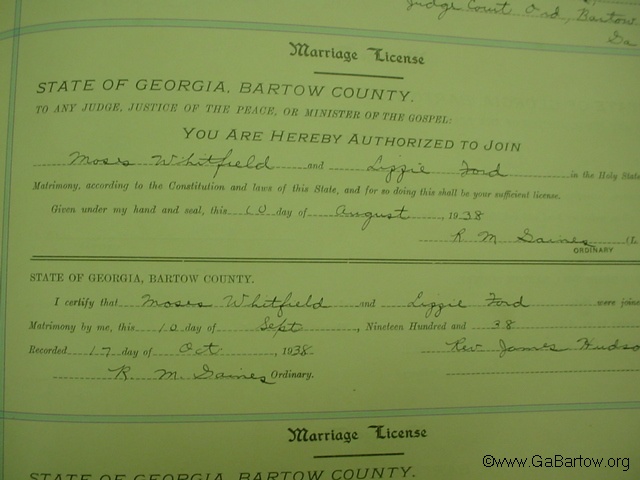 Judge Court Ord., Bartow
Ga
Marriage License
STATE OF GEORGIA, BARTOW COUNTY.
TO ANY JUDGE, JUSTICE OF THE PEACE, OR MINISTER OF THE GOSPEL:
YOU ARE HEREBY AUTHORIZED TO JOIN
Moses Whitfield and Lizzie Ford in the Holy State
Matrimony, according to the Constitution and laws of this State, and for so doing this shall be your sufficient license.
Given under my hand and seal, this 10 day of August, 1938
R M Gaines (L.
ORDINARY
STATE OF GEORGIA, BARTOW COUNTY.
I certify that Moses Whitfield and Lizzie Ford were joine
Matrimony by me, this 10 day of Sept, Nineteen Hundred and 38
Recorded 17 day of Oct, 1938. Rev. James Hudso
R. M. Gaines Ordinary.
Marriage License
STATE OF GEORGIA, BARTOW COUNTY.
©www.GaBartow.org